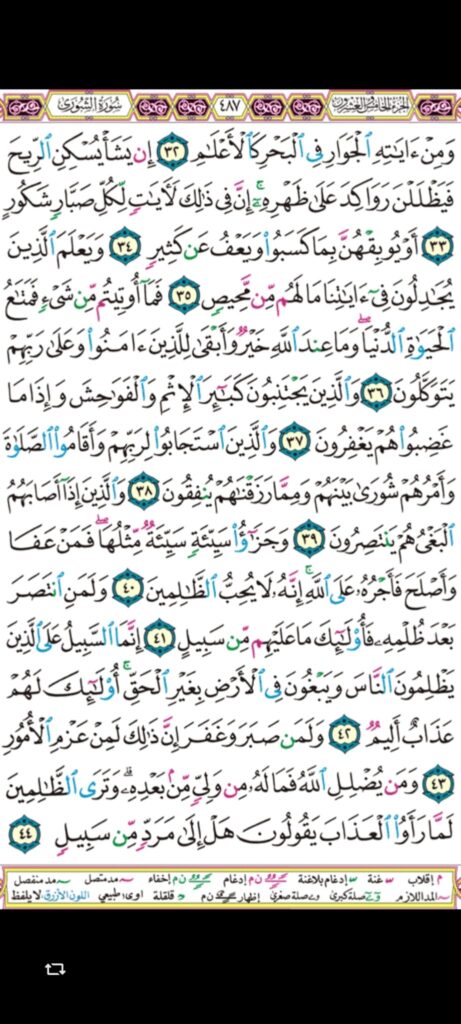 الجزء الخامس والعشرون ٤٨٧ سورة الشورى
وَمِنْ ءَايَٰتِهِ ٱلْجَوَارِ فِى ٱلْبَحْرِ كَٱلْأَعْلَٰمِ ٣٢ إِن يَشَأْ يُسْكِنِ ٱلرِّيحَ
فَيَظْلَلْنَ رَوَاكِدَ عَلَىٰ ظَهْرِهِۦٓ ۚ إِنَّ فِى ذَٰلِكَ لَءَايَٰتٍ لِّكُلِّ صَبَّارٍ شَكُورٍ
٣٣ أَوْ يُوبِقْهُنَّ بِمَا كَسَبُوا۟ وَيَعْفُ عَن كَثِيرٍ ٣٤ وَيَعْلَمَ ٱلَّذِينَ
يُجَٰدِلُونَ فِىٓ ءَايَٰتِنَا مَا لَهُم مِّن مَّحِيصٍ ٣٥ فَمَآ أُوتِيتُم مِّن شَىْءٍ فَمَتَٰعُ
ٱلْحَيَوٰةِ ٱلدُّنْيَا ۖ وَمَا عِندَ ٱللَّهِ خَيْرٌ وَأَبْقَىٰ لِلَّذِينَ ءَامَنُوا۟ وَعَلَىٰ رَبِّهِمْ
يَتَوَكَّلُونَ ٣٦ وَٱلَّذِينَ يَجْتَنِبُونَ كَبَٰٓئِرَ ٱلْإِثْمِ وَٱلْفَوَٰحِشَ وَإِذَا مَا
غَضِبُوا۟ هُمْ يَغْفِرُونَ ٣٧ وَٱلَّذِينَ ٱسْتَجَابُوا۟ لِرَبِّهِمْ وَأَقَامُوا۟ ٱلصَّلَوٰةَ
وَأَمْرُهُمْ شُورَىٰ بَيْنَهُمْ وَمِمَّا رَزَقْنَٰهُمْ يُنفِقُونَ ٣٨ وَٱلَّذِينَ إِذَآ أَصَابَهُمُ
ٱلْبَغْىُ هُمْ يَنتَصِرُونَ ٣٩ وَجَزَٰٓؤُا۟ سَيِّئَةٍ سَيِّئَةٌ مِّثْلُهَا ۖ فَمَنْ عَفَا
وَأَصْلَحَ فَأَجْرُهُۥ عَلَى ٱللَّهِ ۚ إِنَّهُۥ لَا يُحِبُّ ٱلظَّٰلِمِينَ ٤٠ وَلَمَنِ ٱنتَصَرَ
بَعْدَ ظُلْمِهِۦ فَأُو۟لَٰٓئِكَ مَا عَلَيْهِم مِّن سَبِيلٍ ٤١ إِنَّمَا ٱلسَّبِيلُ عَلَى ٱلَّذِينَ
يَظْلِمُونَ ٱلنَّاسَ وَيَبْغُونَ فِى ٱلْأَرْضِ بِغَيْرِ ٱلْحَقِّ ۚ أُو۟لَٰٓئِكَ لَهُمْ
عَذَابٌ أَلِيمٌ ٤٢ وَلَمَن صَبَرَ وَغَفَرَ إِنَّ ذَٰلِكَ لَمِنْ عَزْمِ ٱلْأُمُورِ
٤٣ وَمَن يُضْلِلِ ٱللَّهُ فَمَا لَهُۥ مِن وَلِىٍّ مِّنۢ بَعْدِهِۦ ۗ وَتَرَى ٱلظَّٰلِمِينَ
لَمَّا رَأَوُا۟ ٱلْعَذَابَ يَقُولُونَ هَلْ إِلَىٰ مَرَدٍّ مِّن سَبِيلٍ ٤٤
م إقلاب غنة إدغام بلاغنة ن م إدغام ن م إخفاء مد متصل مد منفصل
المد اللازم صلة كبرى صلة صغرى إظهار ن م قلقلة اوى: طبيعي اللون الأزرق: لا يلفظ